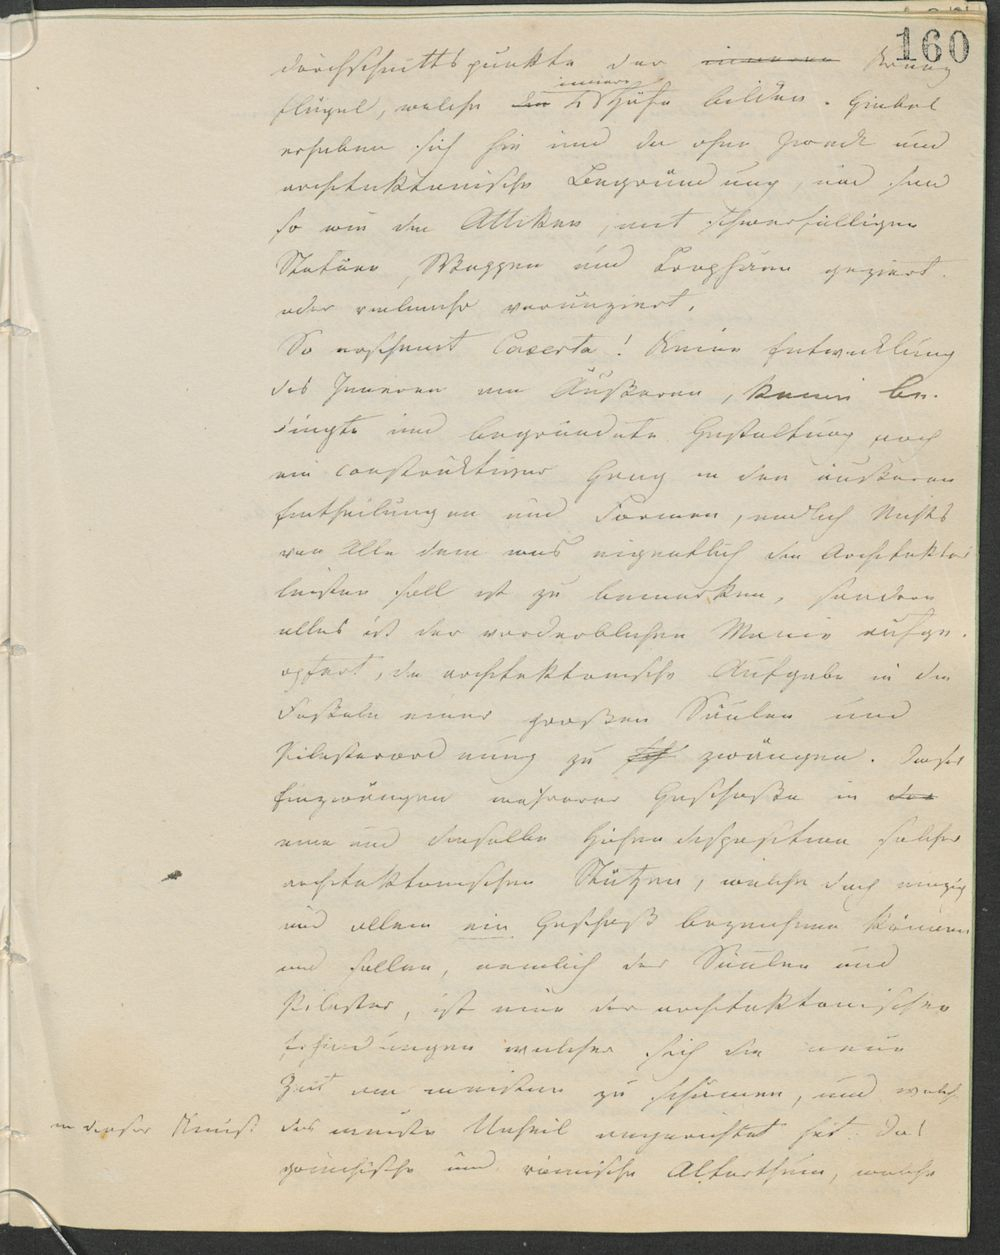 160
durchschnittspunkte der inneren Kreuz
flügel, welche die 4 innere Höfe bilden. Giebel
erheben sich hie und da ohne Zweck und
architektonische Begründung, und sind
so wie die Attiken, mit schwerfälligen
Statuen, Wappen und Trophäen geziert
oder vielmehr verunziert.
So erscheint Caserta! Keine Entwicklung
des Inneren am Äußeren, keine be-
dingte und begründete Gestaltung noch
ein constructiver Gang in den äußeren
Eintheilungen und Formen, endlich Nichts
von Alle dem was eigentlich die Architektur
leisten soll ist zu bemerken, sondern
alles ist der verderblichen Manie aufge-
opfert, die architektonische Aufgabe in die
Fesseln einer großen Säulen und
Pilasterordnung zu zwängen. Dieses
Einzwängen mehrerer Geschoße in
eine und dieselbe Höhendisposition solcher
architektonischen Stützen, welche doch einzig
und allein ein Geschoß bezeichnen können
und sollen, nemlich der Säulen und
Pilaster, ist eine der architektonischen
Erfindungen welcher sich die neue
Zeit am meisten zu schämen, und welche
in dieser Kunst das meiste Unheil angerichtet hat. Das
griechische und römische Alterthum, welche